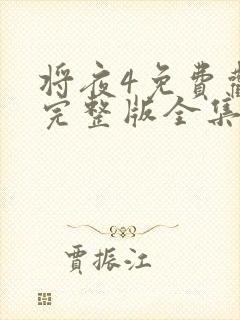 将夜4免费
完整版全集
贾振江